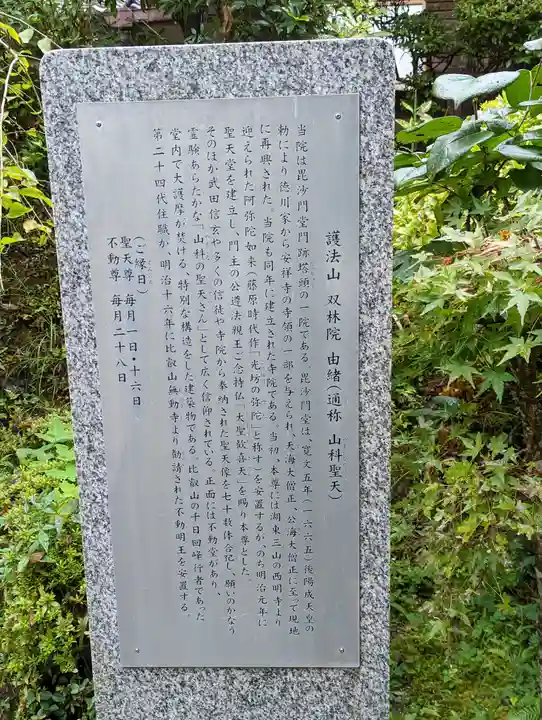 護法山 双林院 由緒(通称 山科聖天)
当院は毘沙門堂門跡塔頭の一院である。毘沙門堂は、寛文五年(一六六五)後陽成天皇の
勅により徳川家から安祥寺の寺領の一部を与えられ、天海大僧正、公海大僧正に至って現地
に再興された。当院も同年に建立された寺院である。当初、本尊には湖東三山の西明寺より
迎えられた阿弥陀如来(藤原時代作「光坊の弥陀」と称す)を安置するが、のち明治元年に
聖天堂を建立し、門主の公遵法親王ご念持仏「大聖歓喜天」を賜り本尊とした。
そのほか武田信玄や多くの信徒や寺院から奉納された聖天像を七十数体合祀し、願いのかなう
霊験あらたかな「山科の聖天さん」として広く信仰されている。正面には不動堂があり、
堂内で大護摩が焚ける、特別な構造をした建築物である。比叡山の千日回峰行者であった
第二十四代住職が、明治十六年に比叡山無動寺より勧請された不動明王を安置する。
(ご縁日)
聖天尊 毎月一日・十六日
不動尊 毎月二十八日